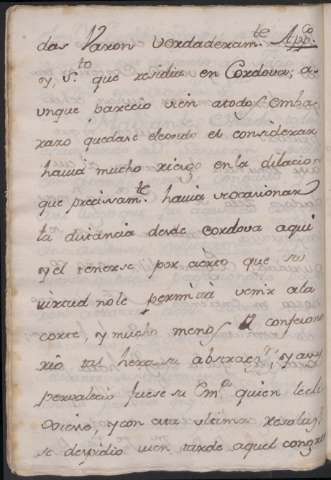 das Varon verdaderam.te App.co
y, S.to que residia en Cordova; a-
unque parecio vien atodos emba-
razo quedase eleondo el considerar
havia mucho riesgo en la dilacion
que precissam.te havia de ocasionar
la distancia desde cordova aqui
y el tenerse por cierto que su
virtud no le permitia venir ala
corte, y mucho menos confesiona
rio tal hera su abstracn; y assi
prevalecio fuese su m.o quien
y con esta ultima resoluz.n
se despidio vien tarde aquel congre